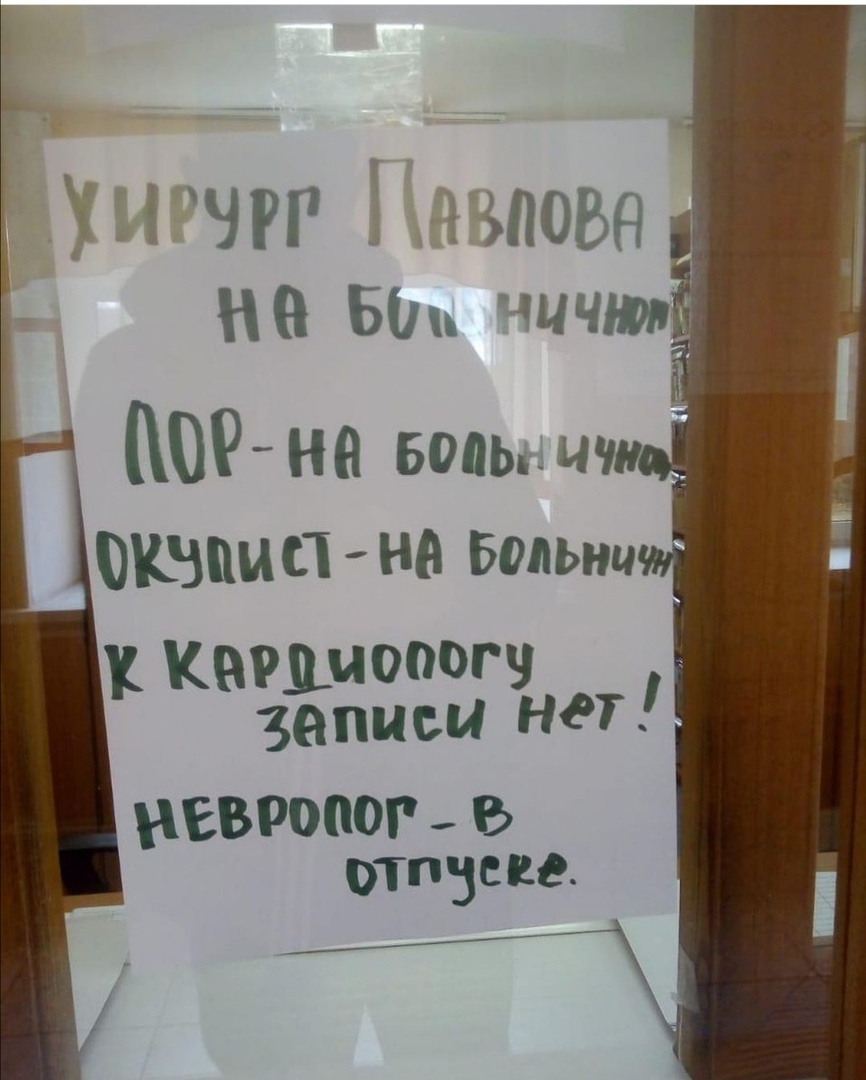 ХИРУРГ ПАВЛОВА
НА БОЛЬНИЧНОМ
ЛОР-НА БОЛЬНИЧНОМ
ОКУЛИСТ-НА БОЛЬНИЧН
К КАРДИОЛОГУ
ЗАПИСИ НЕТ!
НЕВРОЛОГ-В
ОТПУСКЕ.